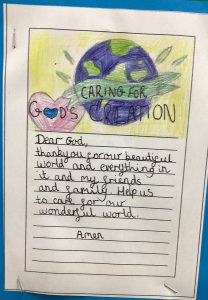 CARING FOR
GOD'S CREATION
Dear God,
thankyou for our beautiful
world and everything in
it and my friends
and family Help us
to care for our
wonderful world.
Amen